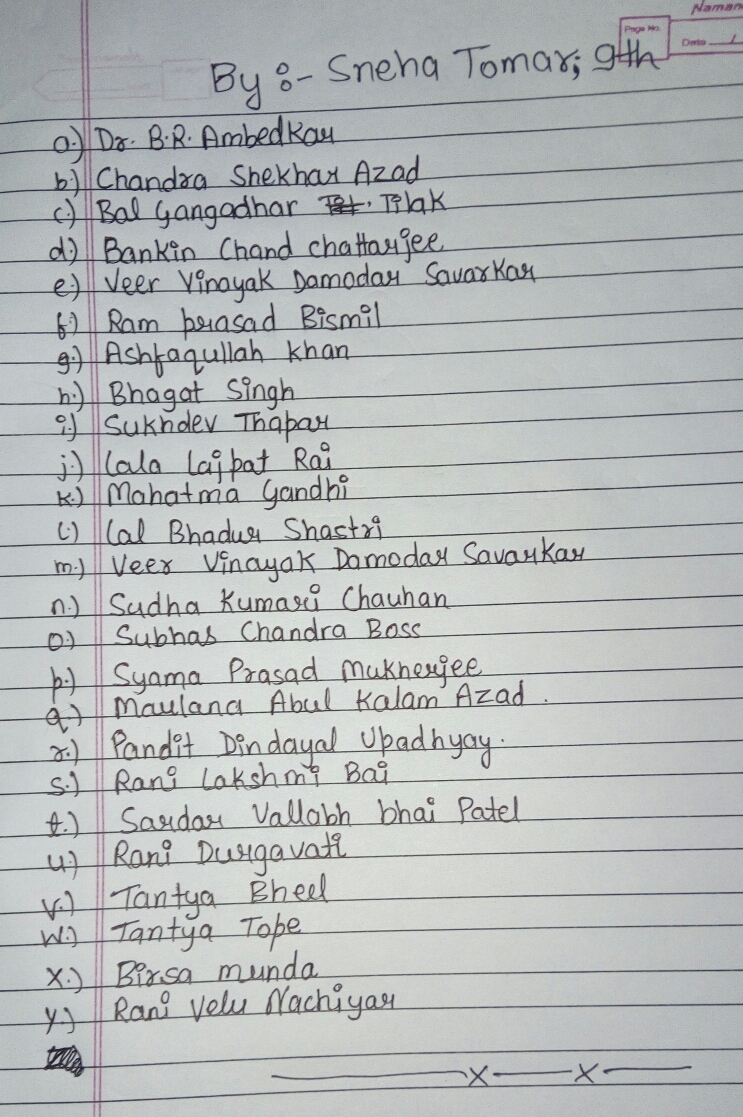 Naman
Page No.
Date
By :- Sneha Tomar; 9th
a.) Dr. B.R. Ambedkar
b.) Chandra Shekhar Azad
c.) Bal Gangadhar Tilak
d.) Bankin Chand chattarjee
e.) Veer Vinayak Damodar Savarkar
f.) Ram prasad Bismil
g.) Ashfaqullah khan
h.) Bhagat Singh
i.) Sukhdev Thapar
j.) Lala Lajpat Rai
k.) Mahatma Gandhi
l.) Lal Bhadur Shastri
m.) Veer Vinayak Damodar Savarkar
n.) Sudha Kumari Chauhan
o.) Subhas Chandra Bose
p.) Syama Prasad Mukherjee
q.) Maulana Abul Kalam Azad.
r.) Pandit Dindayal Upadhyay.
s.) Rani Lakshmi Bai
t.) Sardar Vallabh bhai Patel
u.) Rani Durgavati
v.) Tantya Bheel
w.) Tantya Tope
x.) Birsa munda
y.) Rani Velu Nachiyar
x x